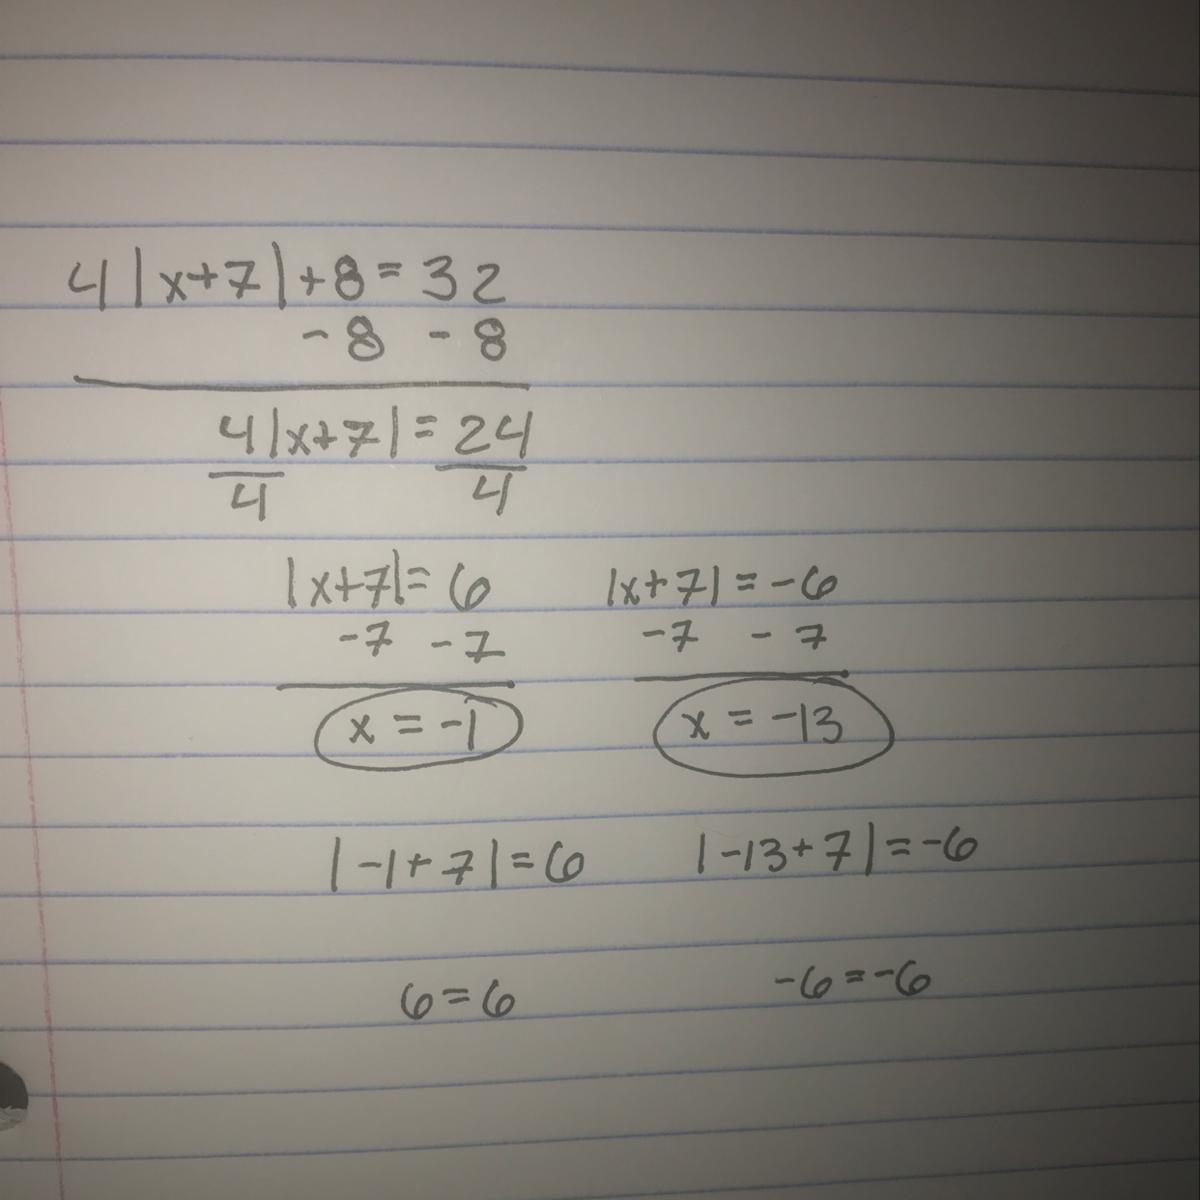 4|x+7|+8=32
-8 -8
4|x+7|=24
4 4
|x+7|=6 |x+7|=-6
-7 -7 -7 -7
x=-1 x=-13
|-1+7|=6 |-13+7|=-6
6=6 -6=-6